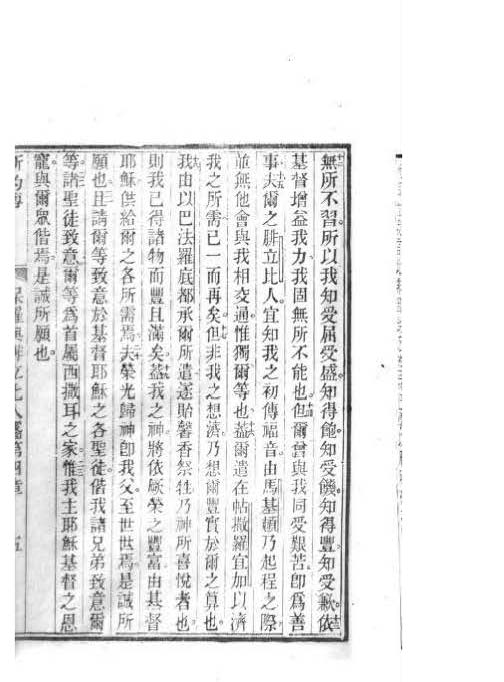 無所不習所以我知受屈受盛知得飽知受饑知得豐知受歉依
基督增益我力我固無所不能也但爾曾與我同受艱苦卽爲善
事夫爾之腓立比人宜知我之初傳福音由馬基頓乃起程之際
並無他會與我相交通惟獨爾等也蓋爾遣在帖撒羅宜加以濟
我之所需已一而再矣但非我之想濟乃想爾豐實於爾之算也
我由以巴法羅底都承爾所遣遂貽馨香祭牲乃神所喜悅者也
則我已得諸物而豐且滿矣蓋我之神將依厥榮之豐富由基督
耶穌供給爾之各所需焉夫榮光歸神卽我父至世世焉是誠所
願也且請爾等致意於基督耶穌之各聖徒偕我諸兄弟致意爾
等諸聖徒致意爾等爲首屬西撒耳之家惟我主耶穌基督之恩
寵與爾眾偕焉是誠所願也
保羅與腓立比人書第四章 五